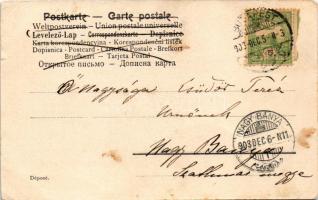 Postkarte — Carte postale
Weltpostverein — Union postale universelle
Levelező-Lap — Correspondenzkarte — Dopisnice
Karta korrespondencyjna - Korespondenční lístek
Dopisnica - Postcard - Cartolina Postale - Brefkort
Brefkaart - Tarjeta Postal
Открытое письмо — Дописна карта
Ő Nagysága Csüdör Teréz
Urnőnek
Nagy Bánya
Szathmár megye
NAGY-BÁNYA
903 DEC 6-N11
Déposé.